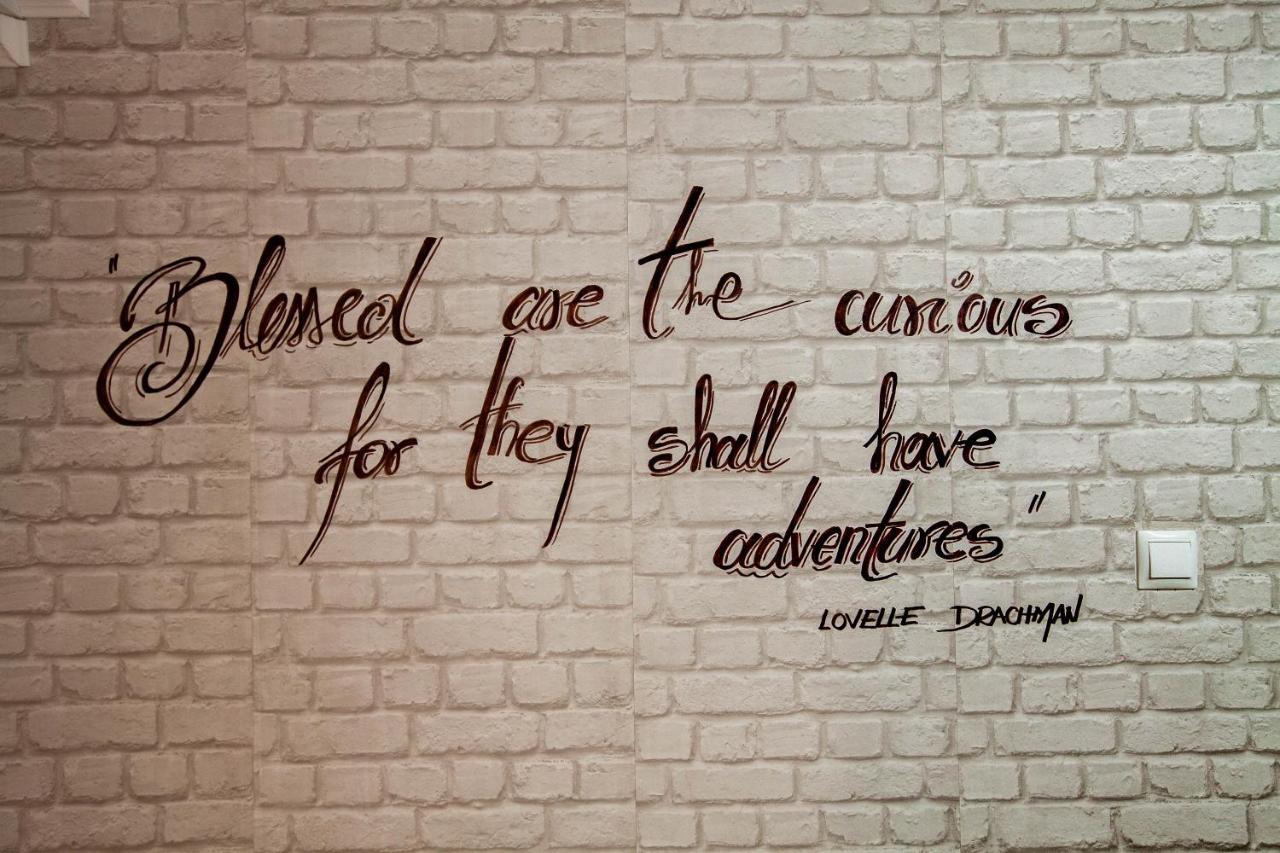 "Blessed are the curious
for they shall have
adventures"
LOVELLE DRACHMAN